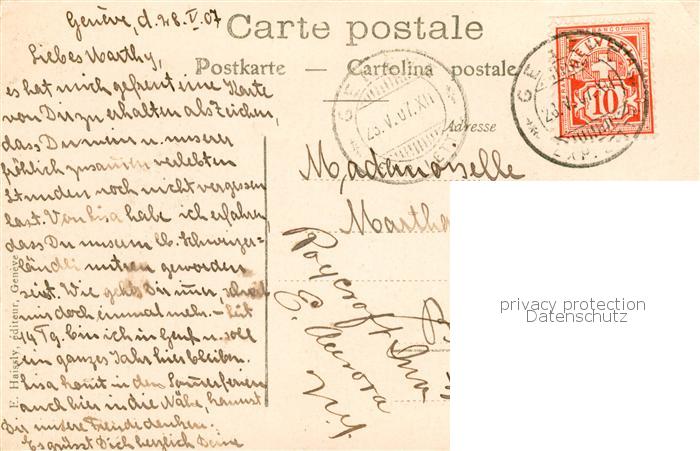 Genève, d. 28. V. 07
Carte postale
Postkarte — Cartolina postale
Adresse
HELVETIA
10
Liebes Marthy,
es hat mich gefreut eine Karte
von Dir zu erhalten als Zeichen,
dass Du mein u. unserer
fröhlich zusammen verlebten
Stunden noch nicht vergessen
hast. Von Lisa habe ich erfahren,
dass Du unserm lb. Schweizer-
ländli untreu geworden
seist. Wie geht's Dir immer, schreib
mir doch einmal mehr. – Seit
14 Tg. bin ich in Genf u. soll
ein ganzes Jahr hier bleiben.
Lisa kommt in den Sommerferien
auch hier in die Nähe, kannst
Dir unsere Freude denken.
Es grüsst Dich herzlich Deine
Mademoiselle
Martha
Roycroft Inn
E. Aurora
N.Y.
E. Haissly, éditeur, Genève
privacy protection
Datenschutz